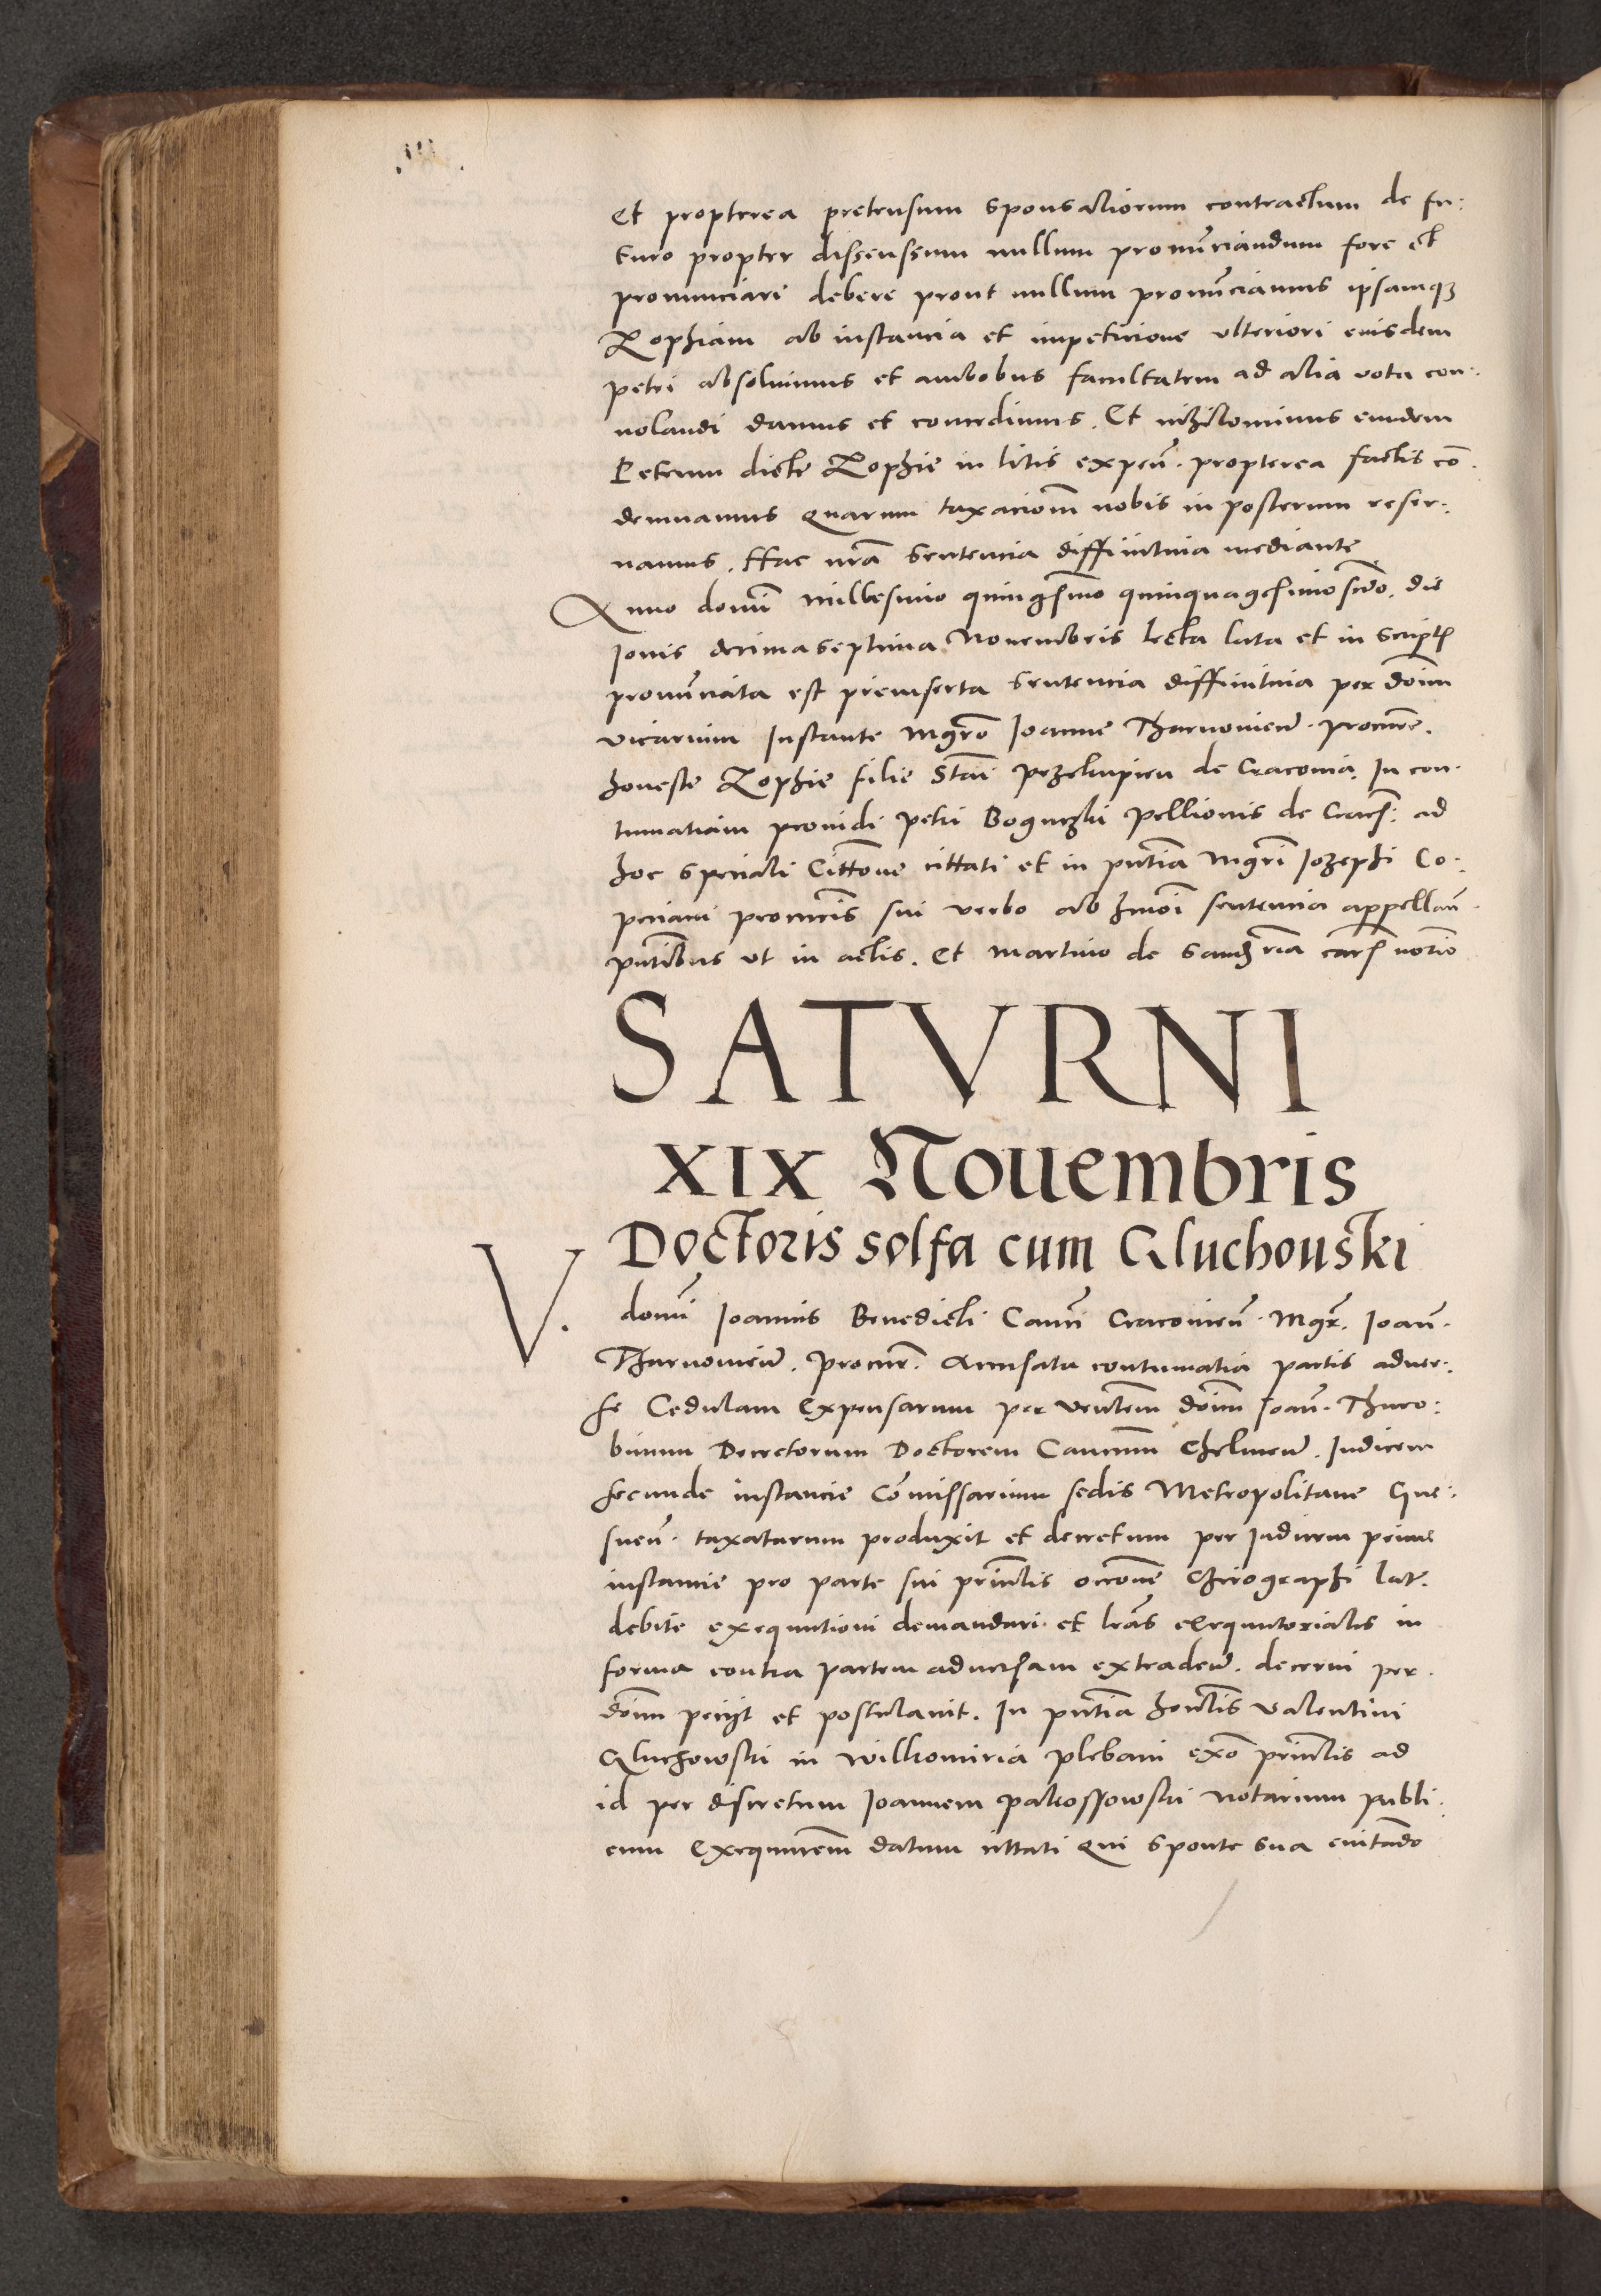 Et propterea pretensum sponsaliorum contractum de fu:
turo propter dissensum nullum pronūciandum fore et
pronunciari debere prout nullum pronūciamus ipsamqȝ
Zophiam ab instancia et impeticione ulteriori eiusdem
petri absoluimus et ambobus facultatem ad alia vota con:
uolandi damus et concedimus. Et nihilominus eundem
Petrum dicte Zophie in litis expen̄. propterea factis cō
demnamus quarum taxacionē nobis in posterum reser:
uamus. Hac nrā sentencia diffinitiua mediante
Anno domī millesimo quingēsimo quinquagesimo scd̄o. die
Jouis decimaseptima Nouembris lecta lata et in script
pronūciata est preinserta sentencia diffinitiua per dōm
vicarium Instante Mgrō Joanne Tharnouien̄. procure.
honeste Zophie filie Stāi Przekupien de Cracouia. In con:
tumatiam prouidi petri Boguczki pellionis de Crac: ad
hoc speciali Cittōne cittati et in pn̄tia Mgrī Jozephi Co:
peciani procurīs sui verbo ab hmōi sentencia appellan̄
pn̄tibus vt in actis. Et Martino de norio
SATVRNI
XIX Nouembris
Doctoris solfa cum Gluchouski
V. domī Joannis Benedicti Cann̄ Cracouien̄. Mgr. Joan̄.
Tharnouien̄. procur. Accusata contumatia partis aduer:
se Cedulam Expensarum per Ven̄lem dōm Joan̄. Thuro:
binum Decretorum Doctorem Canonicum Chelmen̄. Judicem
secunde instancie Cōmissarium sedis Metropolitane Gne:
snen̄. taxatarum produxit et decretum per Judicem prime
instancie pro parte sui prin̄lis occōne Chirographi lat.
debite exequutioni demandari et lrās exequutoriales in
forma contra partem aduersam extraden̄. decerni per
dōm peciit et postulauit. In pn̄tia hon̄lis Valentini
Gluchowski in Wilkomiria plebani exō prin̄lis ad
id per discretum Joannem Notarium publi:
cum Exequutorem datum cittati Qui sponte sua euitādo